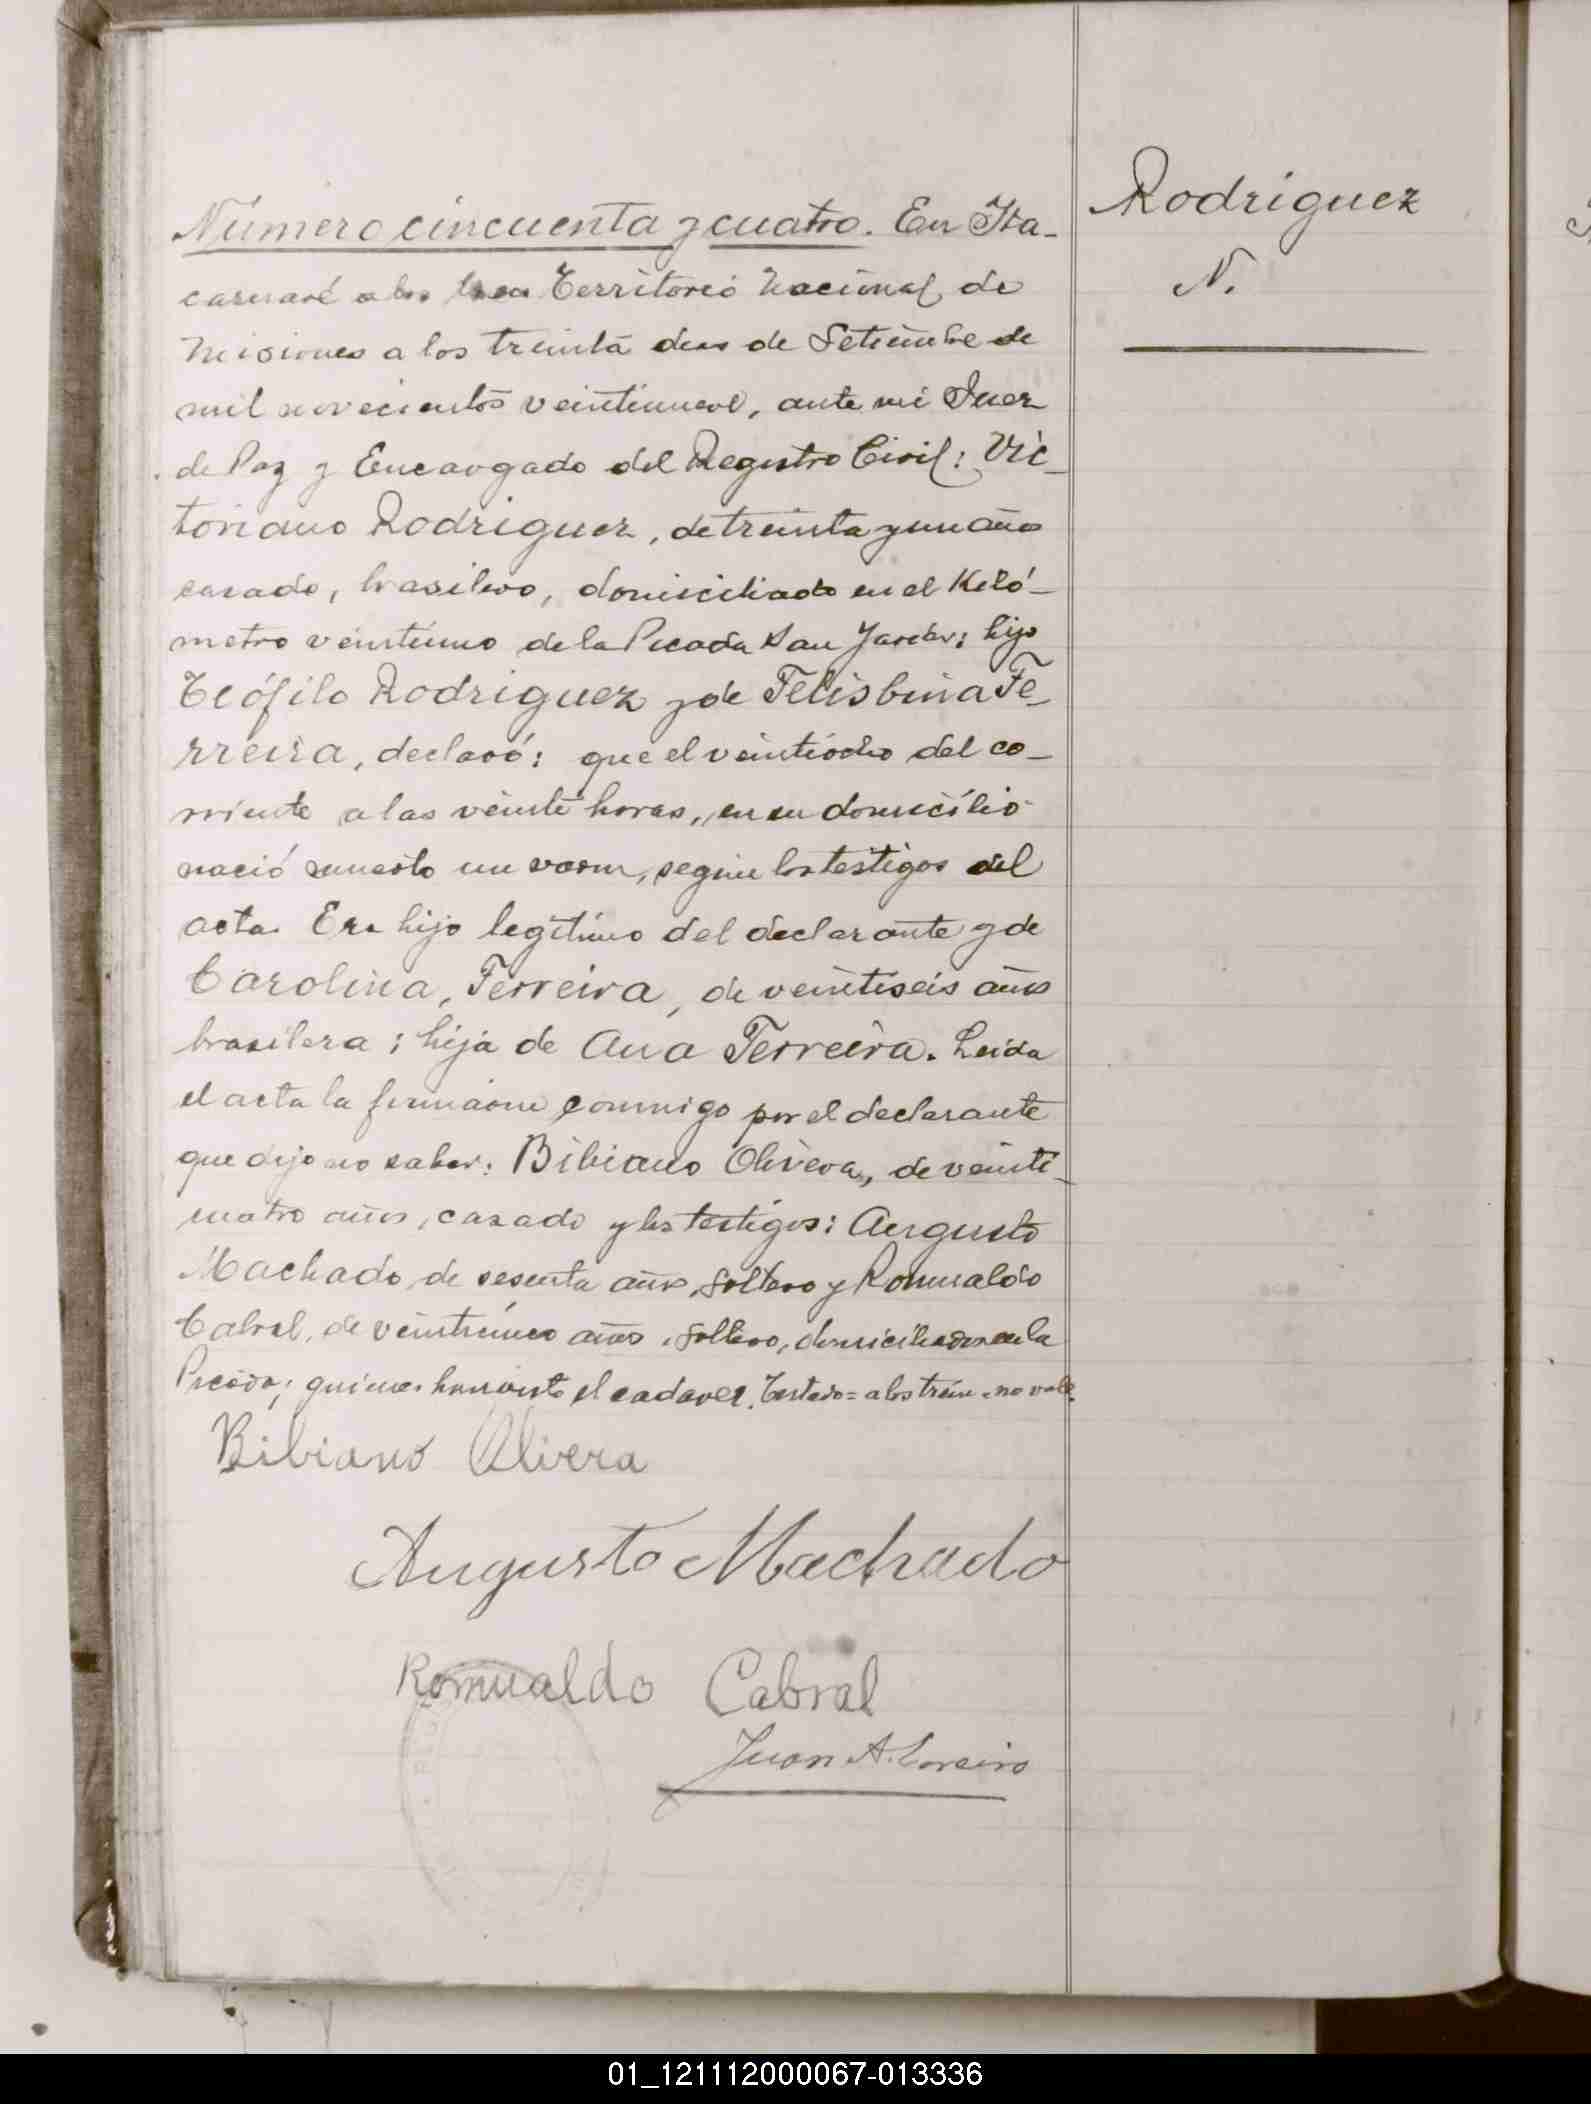 Número cincuenta y cuatro. En Ita-
caruaré a los tren Territorio Nacional de
Misiones a los treinta dias de Setiembre de
mil novecientos veintinueve, ante mi Juez
de Paz y Encargado del Registro Civil: Vic-
toriano Rodriguez, de treinta y un años
casado, brasilero, domiciliado en el Kiló-
metro veintiuno de la Picada San Javier; hijo
Teófilo Rodriguez y de Felisbina Fe-
rreira, declaró: que el veintiocho del co-
rriente a las veinte horas, en su domicilio
nació muerto un varon, segun los testigos del
acta. Era hijo legitimo del declarante y de
Carolina, Ferreira, de veintiseis años
brasilera; hija de Ana Ferreira. Leida
el acta la firmaron conmigo por el declarante
que dijo no saber: Bibiano Olivera, de veinti-
cuatro años, casado y los testigos: Augusto
Machado de sesenta años, soltero y Romualdo
Cabral, de veinticinco años, soltero, domiciliados en la
Picada; quienes han visto el cadaver. Testado=a los tren=no vale.
Bibiano Olivera
Augusto Machado
Romualdo Cabral
Juan A. Loreiro
Rodriguez
N.
01_121112000067-013336